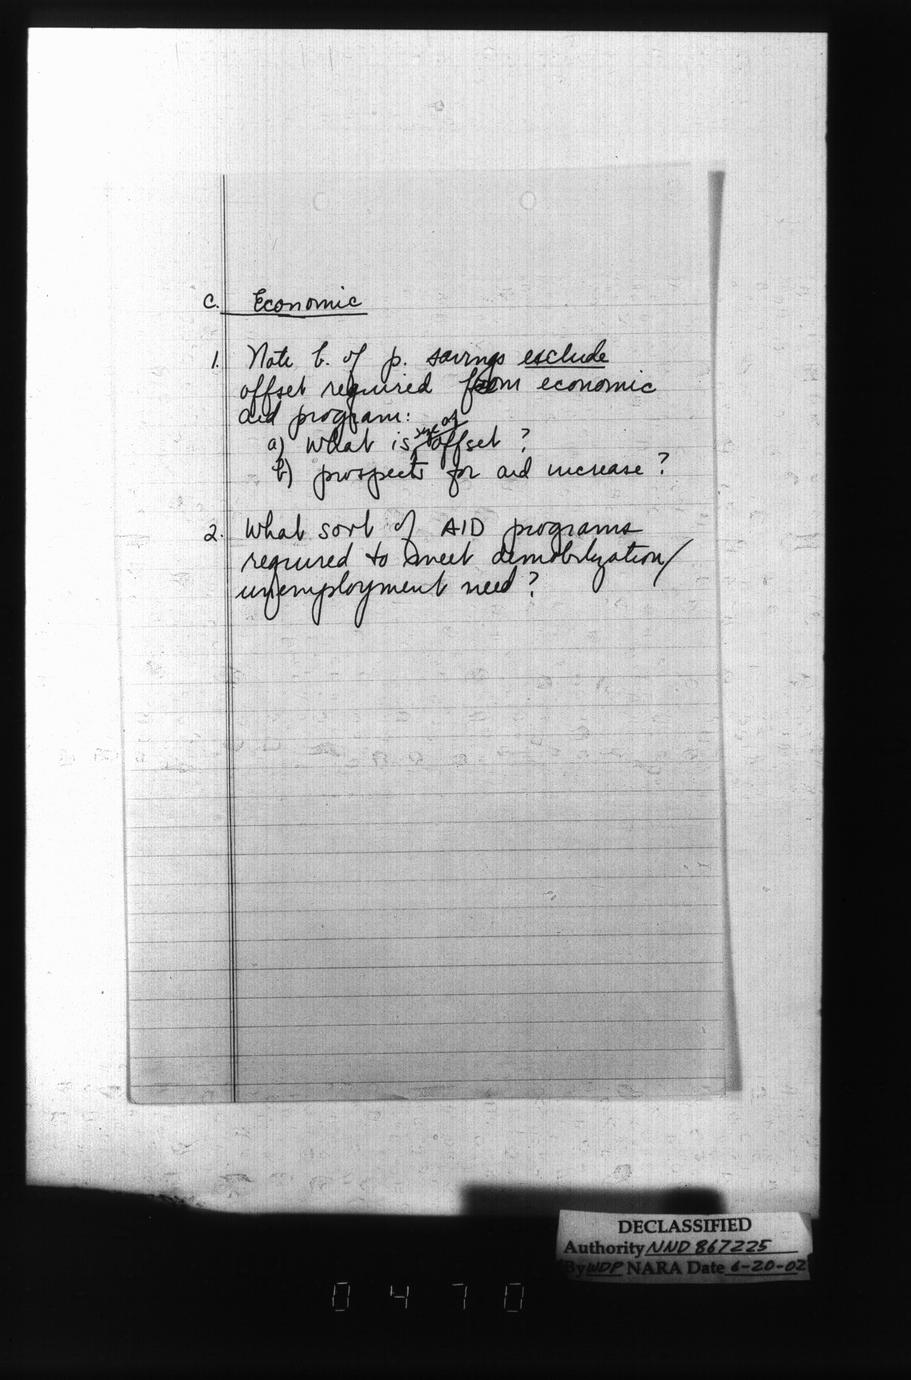 C. Economic
1. Note b. of p. savings exclude
offset required from economic
aid program:
size of
a) What is offset?
b) prospects for aid increase?
2. What sort of AID programs
required to meet demobilization/
unemployment need?
DECLASSIFIED
Authority NND 867225
By WDP NARA Date 6-20-02
0470